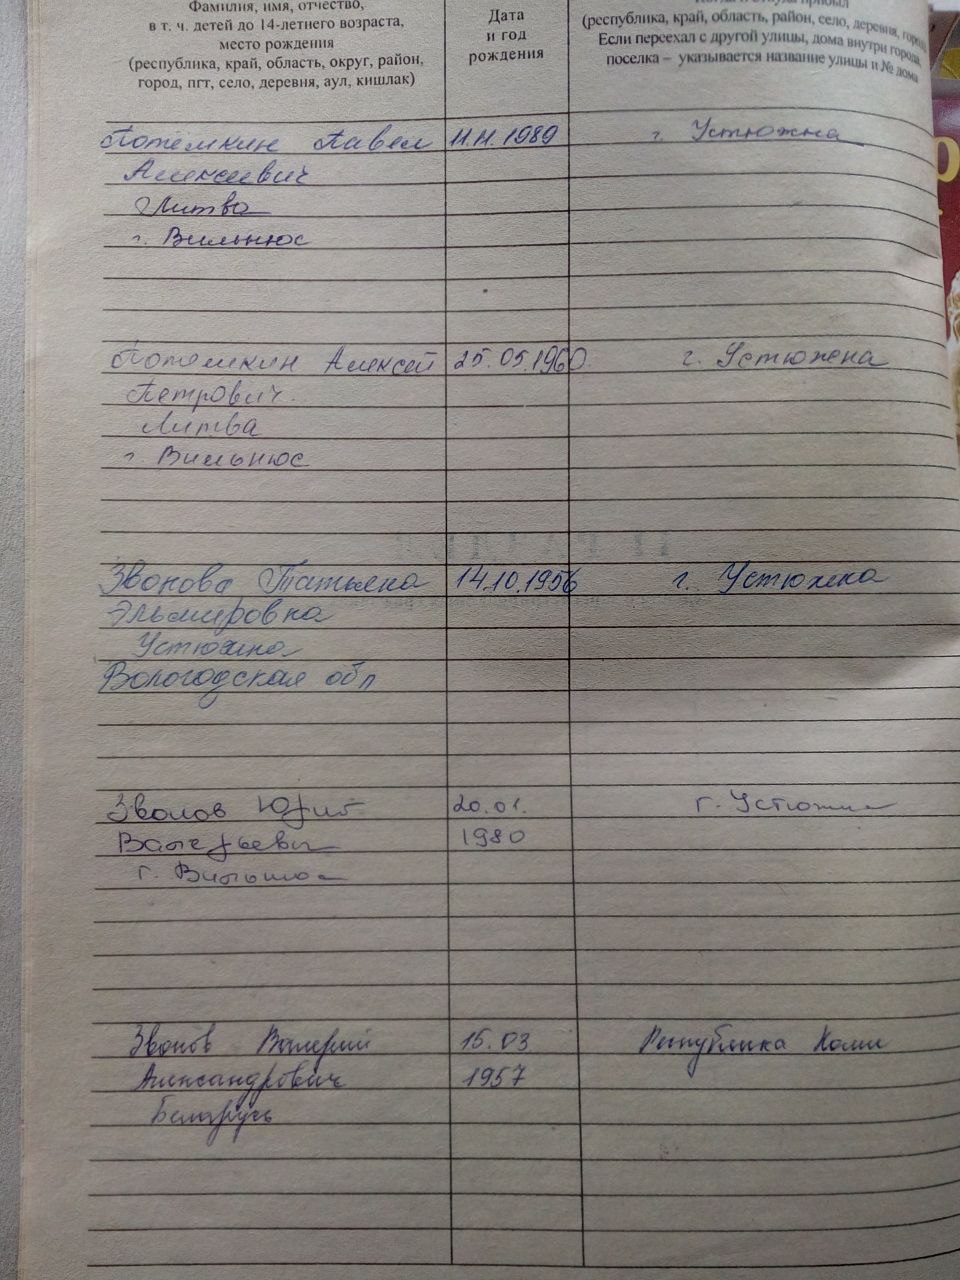 Фамилия, имя, отчество,
в т. ч. детей до 14-летнего возраста,
место рождения
(республика, край, область, округ, район,
город, пгт, село, деревня, аул, кишлак)
Дата
и год
рождения
прибыл
(республика, край, область, район, село, деревня, город)
Если переехал с другой улицы, дома внутри города,
поселка – указывается название улицы и № дома
Потемкин Павел 11.11.1989 г. Устюжна
Алексеевич
Литва
г. Вильнюс
Потемкин Алексей 25.05.1960. г. Устюжена
Петрович.
Литва
г. Вильнюс
Звонова Татьяна 14.10.1956 г. Устюжна
Эльмировна
Устюжна
Вологодская обл
Звонов Юрий 20.01. г. Устюжна
Валерьевич 1980
г. Вильнюс
Звонов Валерий 15.03 Республика Коми
Александрович 1957
Беларусь